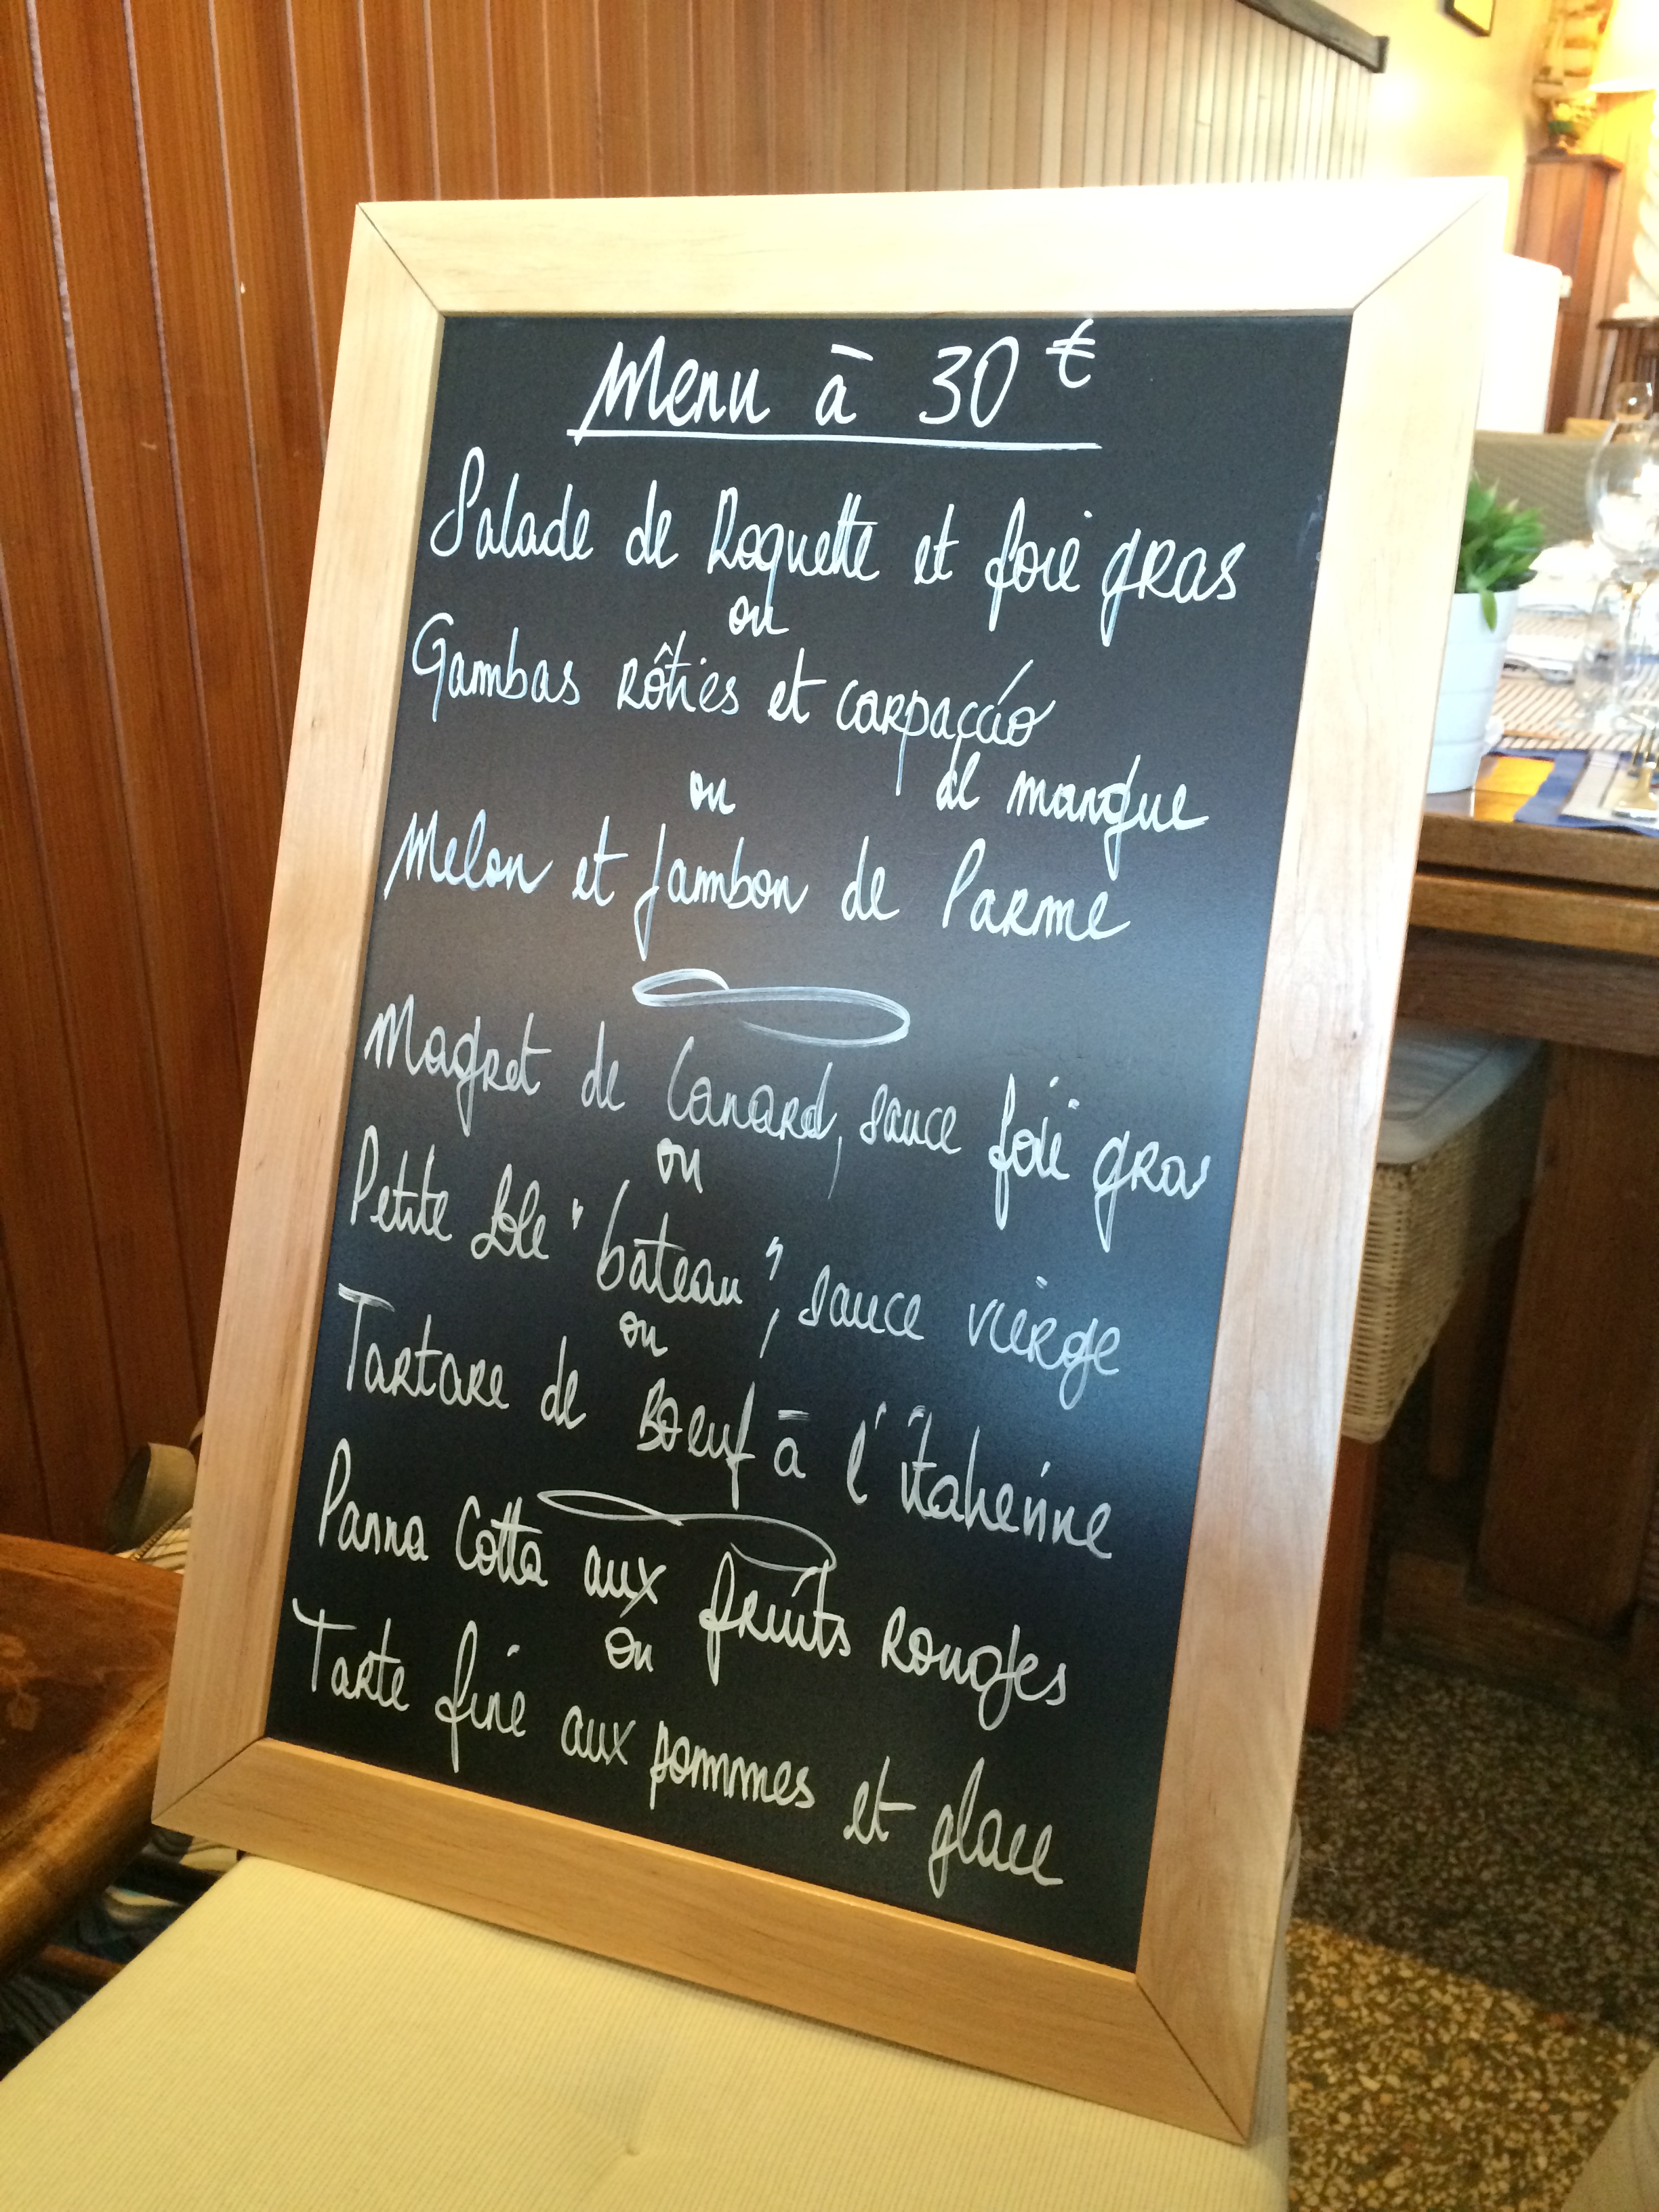 Menu à 30 €
Salade de Roquette et foie gras
ou
Gambas rôties et carpaccio
de mangue
ou
Melon et Jambon de Parme
Magret de Canard, sauce foie gras
ou
Petite Sole "bateau", sauce vierge
ou
Tartare de Boeuf à l'italienne
Panna Cotta aux fruits rouges
ou
Tarte fine aux pommes et glace